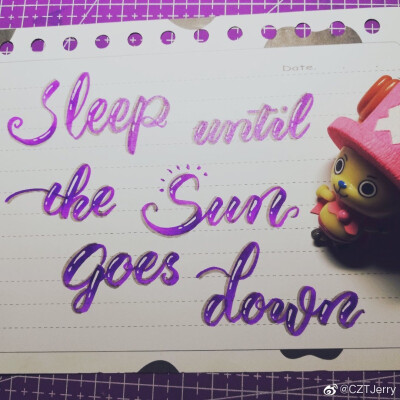 Date.
Sleep until
the Sun
goes down
@CZTJerry